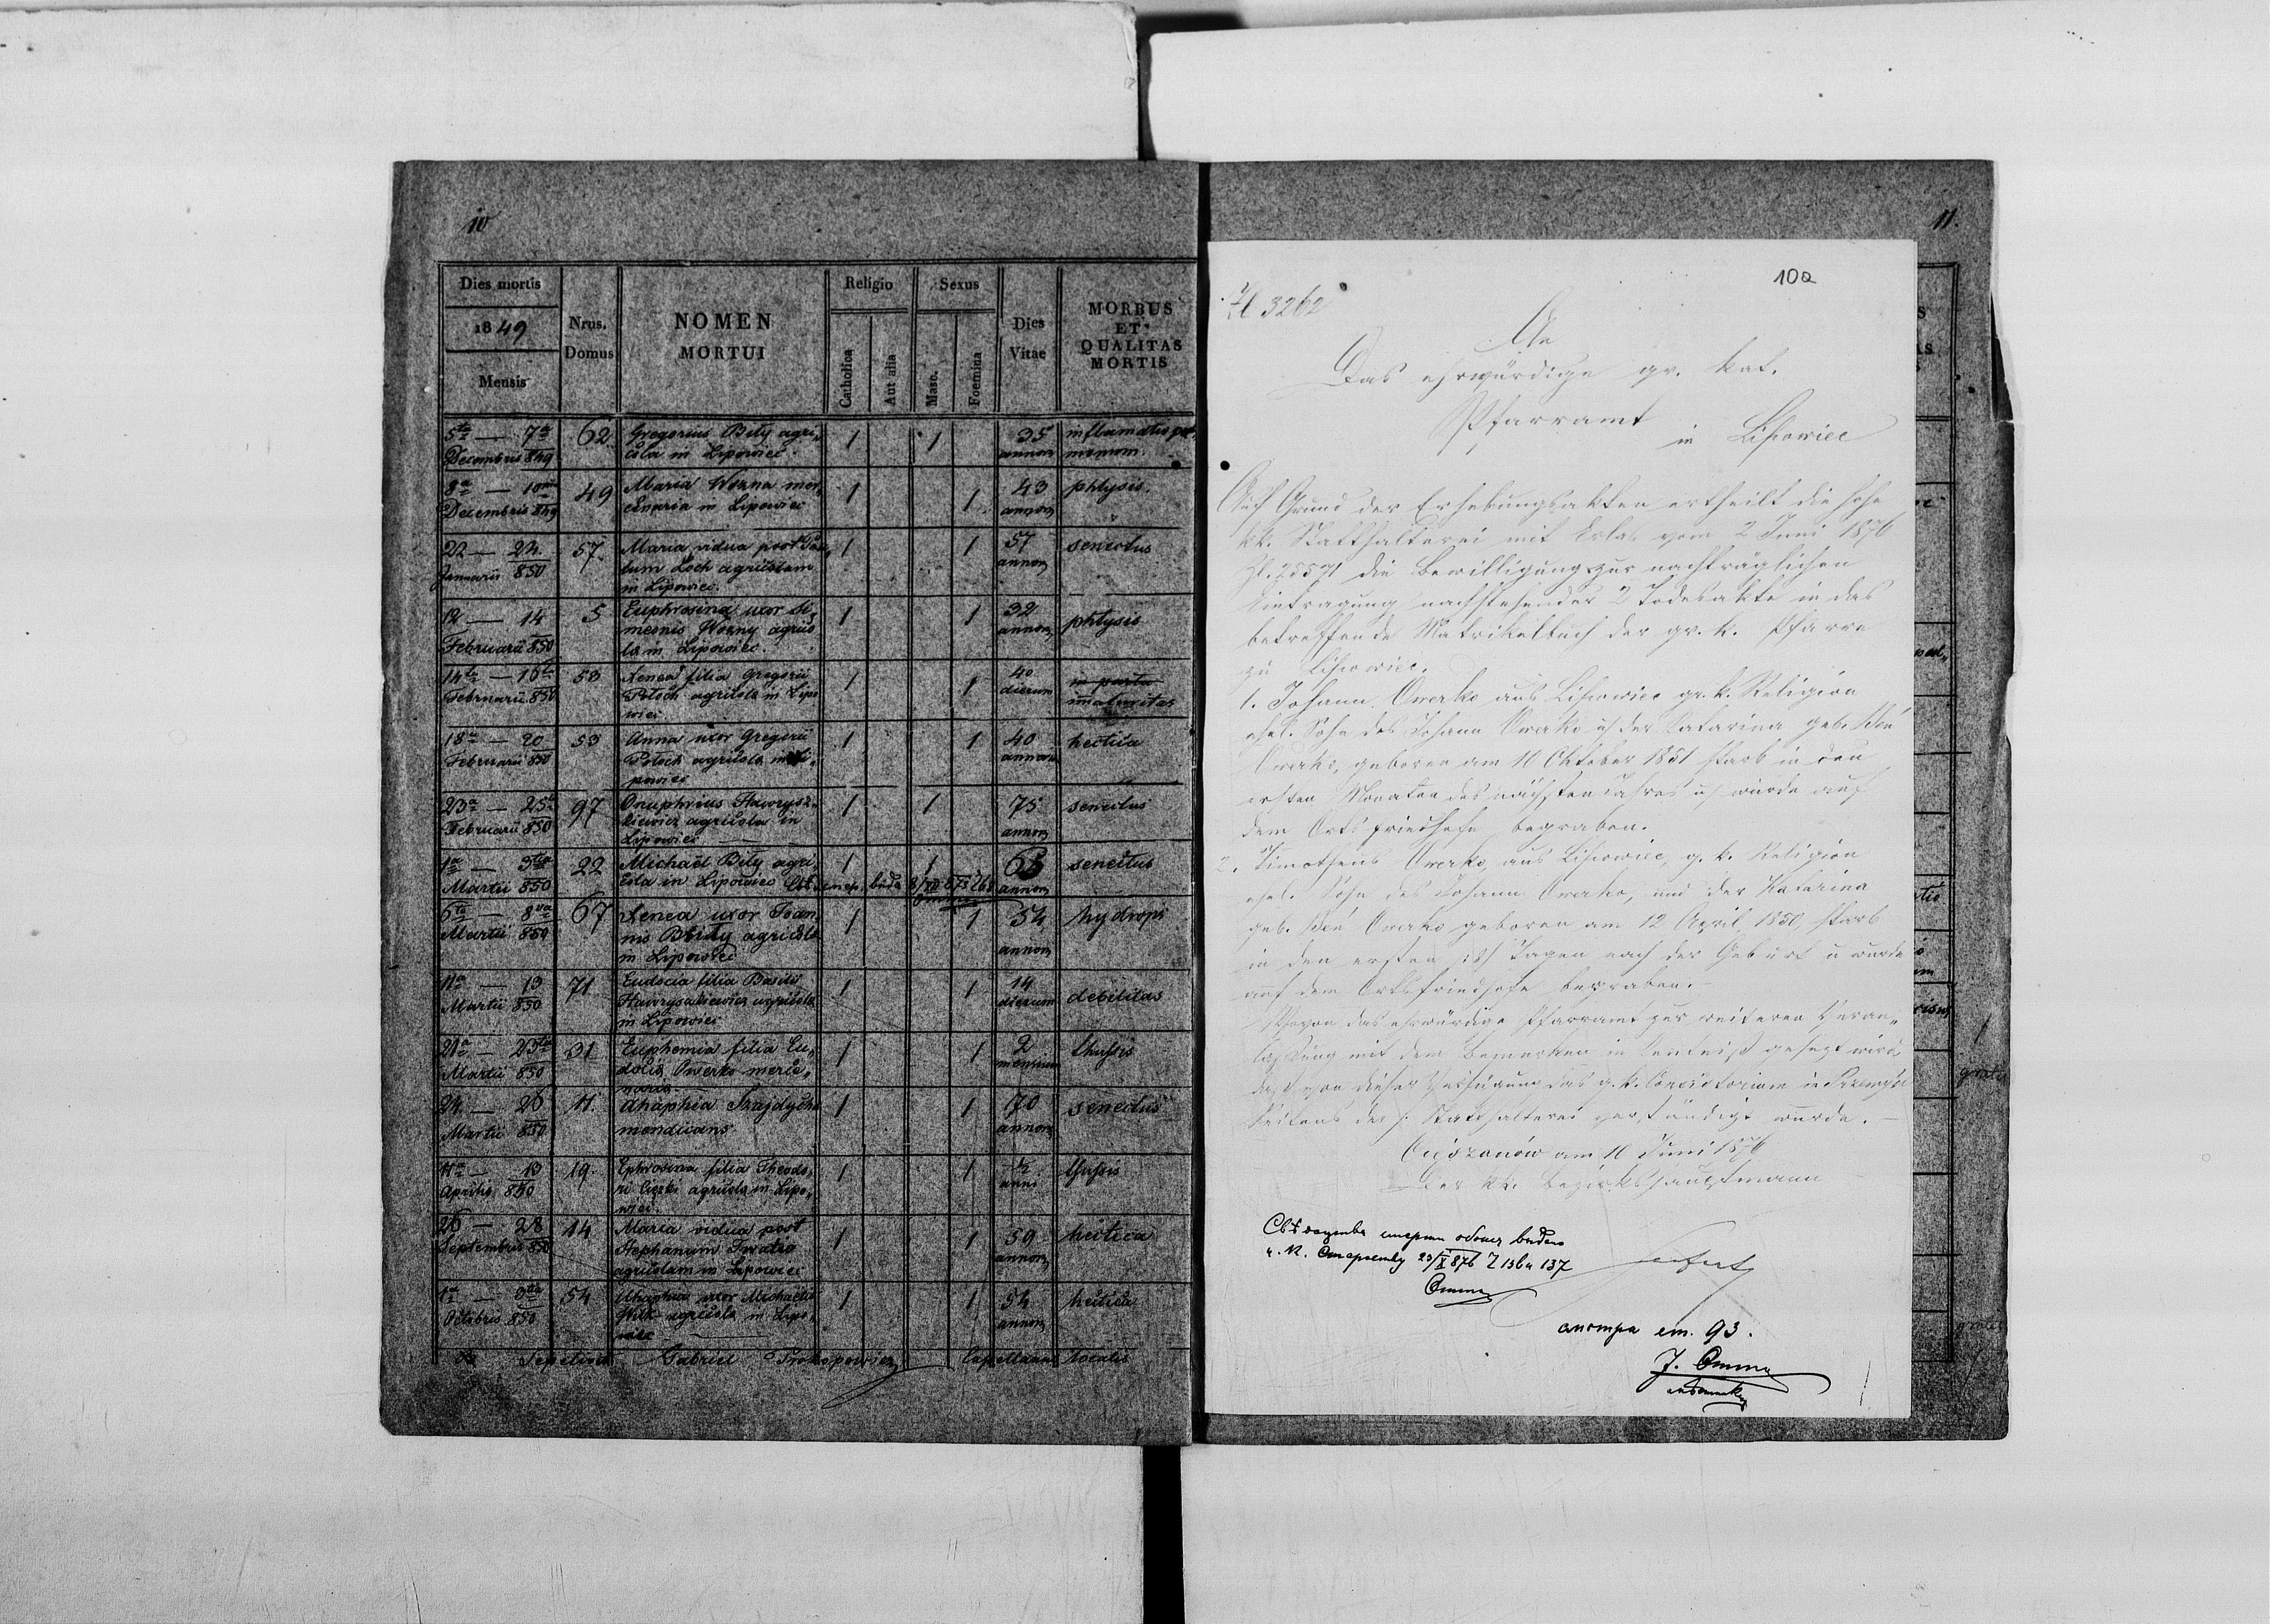 10
Dies mortis
1849
Mensis
Nrus. Domus
NOMEN MORTUI
Religio
Catholica
Aut alia
Sexus
Masc.
Foemina
Dies Vitae
MORBUS ET QUALITAS MORTIS
5ta — 7a 62 Gregorius Biły agri, 1 1 35 inflamatio
Decembris 849 cola in Lipowiec annor
8a — 10ma 49 Maria Wozna mer, 1 1 43 phtysis
Decembris 849 cenaria in Lipowiec annor
22 — 24 57 Maria vidua post 1 1 57 senectus
Januarii 850 Loch agricolam annor
in Lipowiec.
12 — 14 5 Euphrosina uxor Si, 1 1 32 phtysis
Februarii 850 meonis Wozny agrico annor
la in Lipowiec
14ta — 16ta 53 Xenea filia Gregorii 1 1 40 in partu
Februarii 850 Potoch agricola in Lipo dierum imaturitas
wiec
18a — 20 53 Anna uxor Gregorii 1 1 40 hectica
Februarii 850 Potoch agricola in Li, annor
powiec
23a — 25ta 97 Onuphrius Hawrysz, 1 1 75 senectus
Februarii 850 kiewicz agricola in annor
Lipowiec
1a — 3tia 22 Michaël Biły agri, 1 1 senectus
Martii 850 cola in Lipowiec annor
6ta — 8va 67 Xenea uxor Joan, 1 1 54 hydrops
Martii 850 nis agricola annor
in Lipowiec
11a — 13 71 Eudocia filia Basilii 1 1 14 debilitas
Martii 850 Hawryszkiewicz agricola dierum
in Lipowiec
21a — 23tia 31 Euphemia filia Eu, 1 1 2 thussis
Martii 850 docia Owerko merce, mensium
naria
24 — 26 11. Ahaphia Szajdycka 1 1 70 senectus
Martii 850 mendicans annor
11a — 13 19. Ephrosina filia Theodo, 1 1 ½ thussis
Aprilis 850 ri agricola in Lipo, anni
wiec.
26 — 28 14 Maria vidua post 1 1 59 hectica
Septembris 850 Stephanum annor
agricolam in Lipowiec
1a — 3tia 54 Ahaphia uxor Michaelis 1 1 54 hectica
Octobris 850 Wilk agricola in Lipo, annor
wiec
Sepelivit Gabriel Prokopowicz Capellanus localis
11.
10a
Zl 3262
An
Das ehrwürdige gr. kat.
Pfarramt
in Lipowiec
Auf Grund der Erhebungsakten ertheilt die hohe
kk. Statthalterei mit Erlas vom 2 Juni 1876
Zl. 25571 die Bewilligung zur nachträglichen
Eintragung nachstehender 2 Todesakte in das
betreffende Matrikelbuch der gr. k. Pfarre
zu Lipowiec.
1. Johann Owerko aus Lipowiec gr. k. Religion
ehel. Sohn des Johann Owerko u. der Katarina geb.
Owerko, geboren am 11 Oktober 1851 starb in den
ersten Monaten des nächsten Jahres u. wurde auf
dem Ortsfriedhofe begraben.
2. Timotheus Owerko, aus Lipowiec, g. k. Religion
ehel. Sohn des Johann Owerko, und der Katarina
geb. Owerko geboren am 12 April 1850, starb
in den ersten Tagen nach der Geburt u wurde
auf dem Ortsfriedhofe begraben.
Wovon das ehrwürdige Pfarramt zur weiteren Veran,
lassung mit dem Bemerken in Kentniß gesetzt wird,
daß von dieser Verfügung das g. k. Consistorium in Przemysl
Seitens der h. Statthalterei verständigt wurde.
Cieszanów am 10 Juni 1876
Der kk. Bezirkshauptmann
обоих видано
23/X 876 Z 136 и 137
93.
gratis